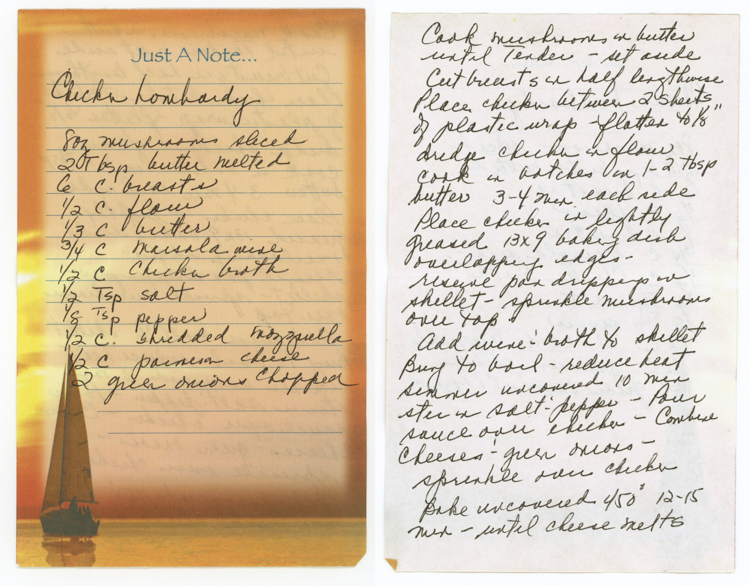 Just A Note...
Chicken Lombardy
8oz mushrooms sliced
2 Tbsp butter melted
6 C. breasts
1/2 C. flour
1/3 C butter
3/4 C Marsala wine
1/2 C Chicken broth
1/2 Tsp salt
1/8 Tsp pepper
1/2 C. shredded mozzzuella
1/2 C parmesn cheese
2 green onions Chopped
Cook mushrooms in butter
until Tender - set aside
Cut breasts in half lengthwise
Place chicken between 2 sheets
of plastic wrap - flatten to 1/8"
dredge chicken in flour
cook in batches in 1-2 Tbsp
butter 3-4 min each side
Place chicken in lightly
greased 13x9 baking dish
overlapping edges -
reserve pan drippings in
skillet - sprinkle mushrooms
over top
Add wine & broth to skillet
Bring to boil - reduce heat
simmer uncovered 10 min
stir in salt & pepper - Pour
sauce over chicken - Combine
cheeses & green onions -
sprinkle over chicken
Bake uncovered 450° 12-15
min - until cheese melts